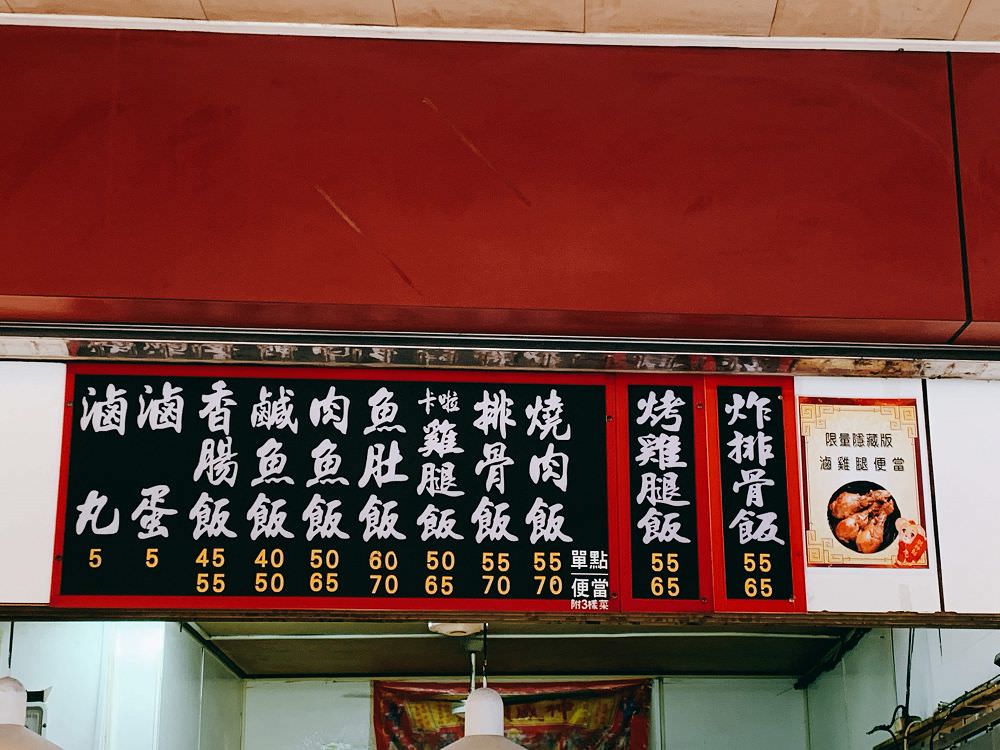 燒肉飯 55 70
排骨飯 55 70
卡啦雞腿飯 50 65
魚肚飯 60 70
肉魚飯 50 65
鹹魚飯 40 50
香腸飯 45 55
滷蛋 5
滷丸 5
單點
便當
附3樣菜
烤雞腿飯 55 65
炸排骨飯 55 65
限量隱藏版
滷雞腿便當